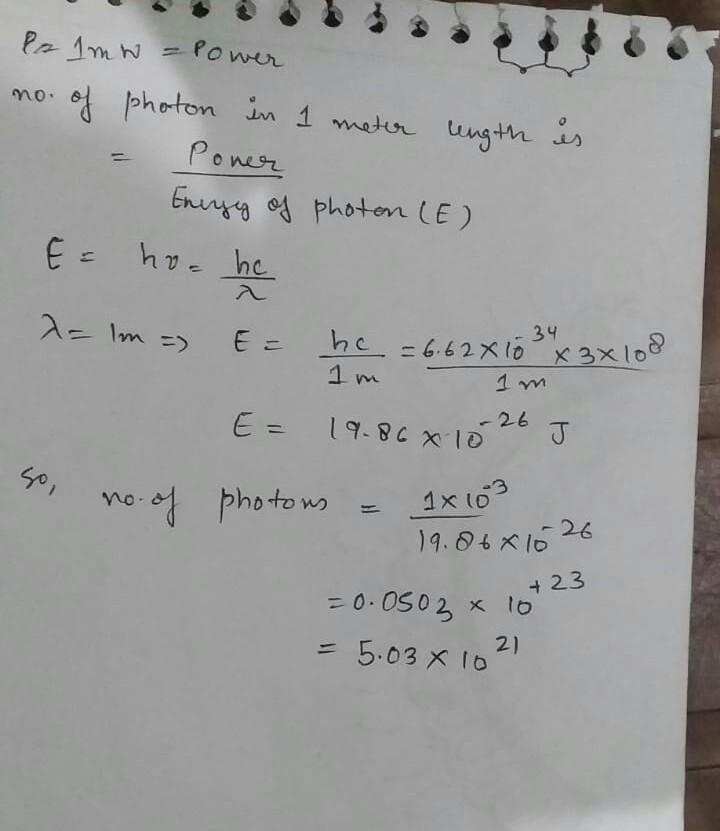 P = 1mW = Power
no. of photon in 1 meter length is
= Power / Energy of photon (E)
E = hν = hc / λ
λ = 1m => E = hc / 1m = 6.62 × 10^-34 × 3 × 10^8 / 1m
E = 19.86 × 10^-26 J
So, no. of photons = 1 × 10^-3 / 19.86 × 10^-26
= 0.0503 × 10^+23
= 5.03 × 10^21